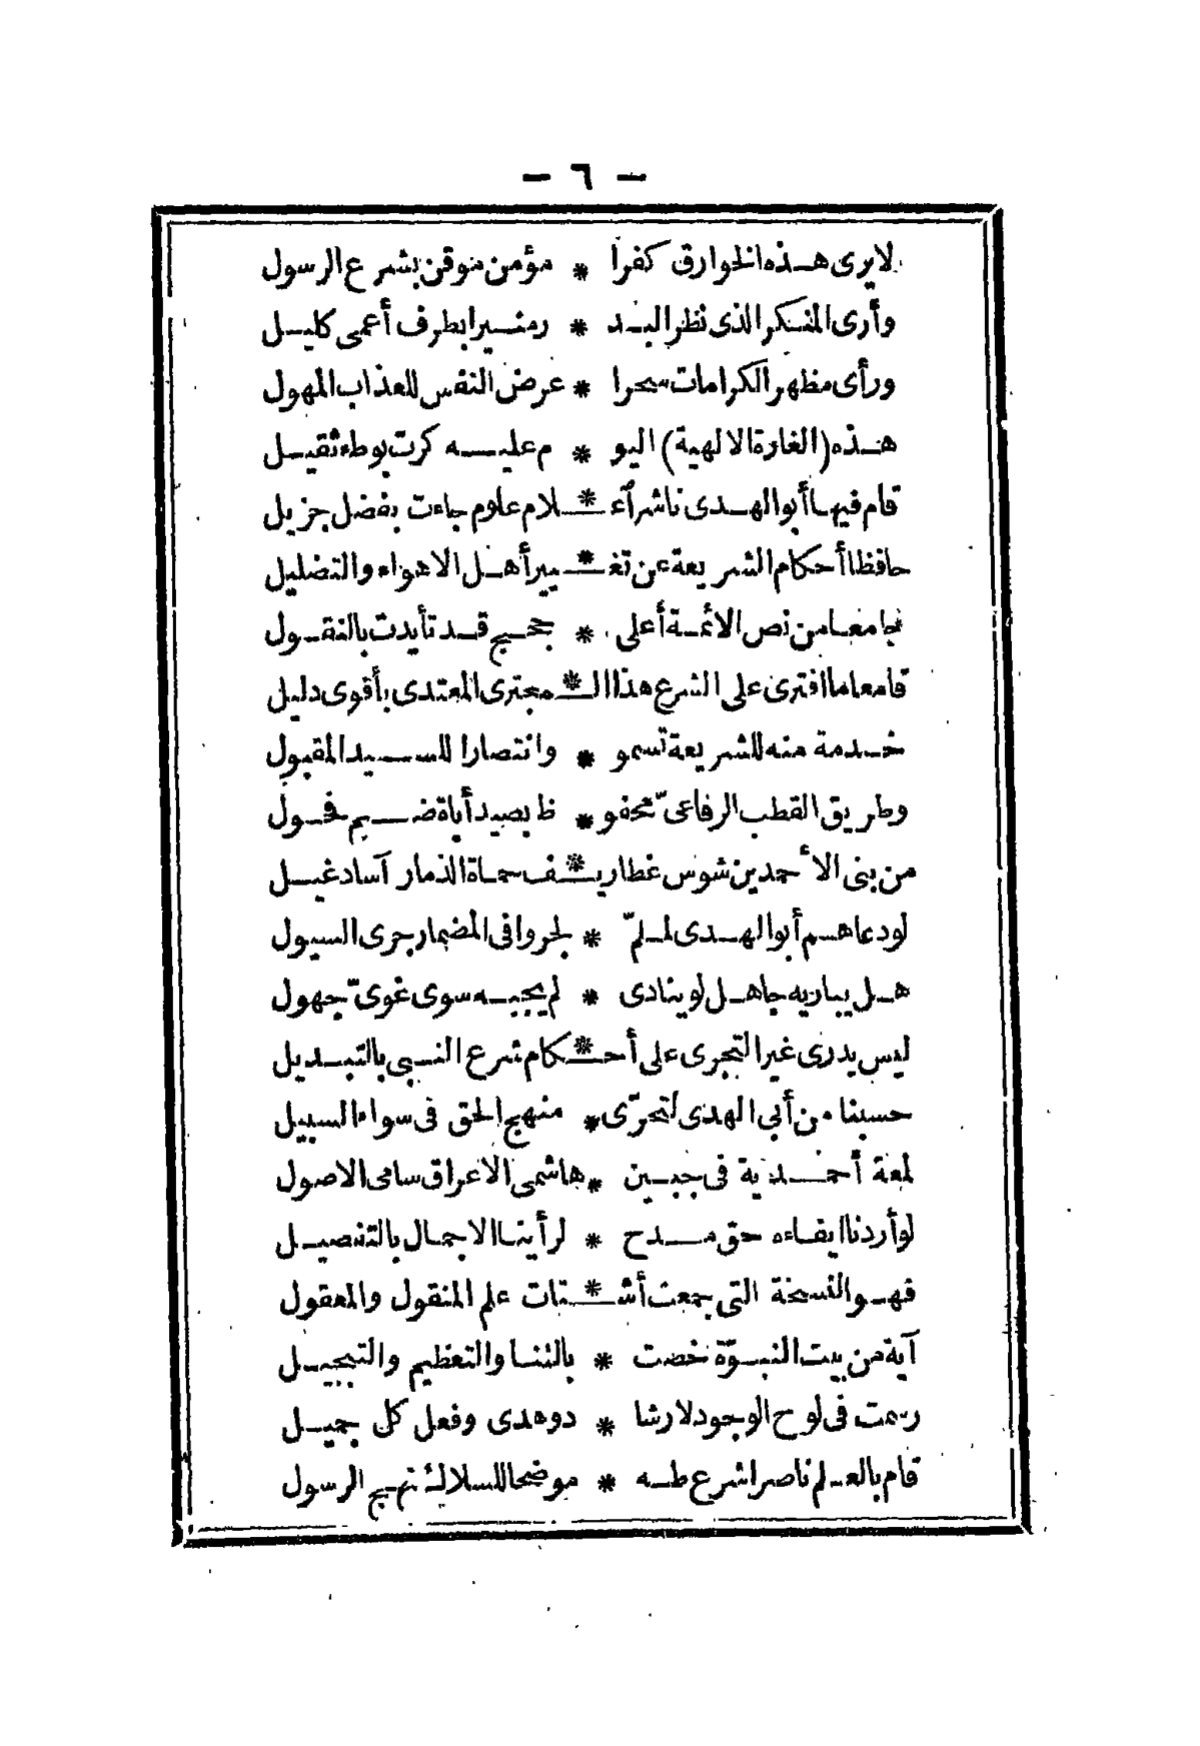 — ٦ —
لا يرى هذه الخوارق كفرا * مؤمن موقن بشرع الرسول
وأرى المنكر الذى نظر البد * ر منيرا بطرف أعمى كليل
ورأى مظهر الكرامات سحرا * عرض النفس للعذاب المهول
هذه (الغارة الالهية) اليو * م عليه كرت بوطء ثقيل
قام فيها أبو الهدى ناشرا أعـ * ـلام علوم جاءت بفضل جزيل
حافظا أحكام الشريعة عن تغـ * ـيير أهل الاهواء والتضليل
جامعا من نص الائمة أعلى * حجج قد تأيدت بالنقول
قامعا ما افترى على الشرع هذا الـ * ـمجترى المعتدى بأقوى دليل
خدمة منه للشريعة تسمو * وانتصارا للسيد المقبول
وطريق القطب الرفاعىّ محفو * ظ بصيد أباة ضيم فحول
من بنى الأحمدين شوس غطاريـ * ـف حماة الذمار آساد غيل
لو دعاهم أبو الهدى لملمّ * لجروا فى المضمار جرى السيول
هل يباريه جاهل لو ينادى * لم يجبه سوى غوىّ جهول
ليس يدرى غير التجرى على أحـ * ـكام شرع النبى بالتبديل
حسبنا من أبى الهدى لتحرّى * منهج الحق فى سواء السبيل
لمعة أحمدية فى جبين * هاشمى الاعراق سامى الاصول
لو أردنا ايفاءه حق مدح * لرأينا الاجمال بالتفصيل
فهو النسخة التى جمعت أشـ * ـتات علم المنقول والمعقول
آية من بيت النبوّة خصت * بالثنا والتعظيم والتبجيل
رسمت فى لوح الوجود لارشا * د وهدى وفعل كل جميل
قام بالعلم ناصرا شرع طه * موضحا للسلالة نهج الرسول